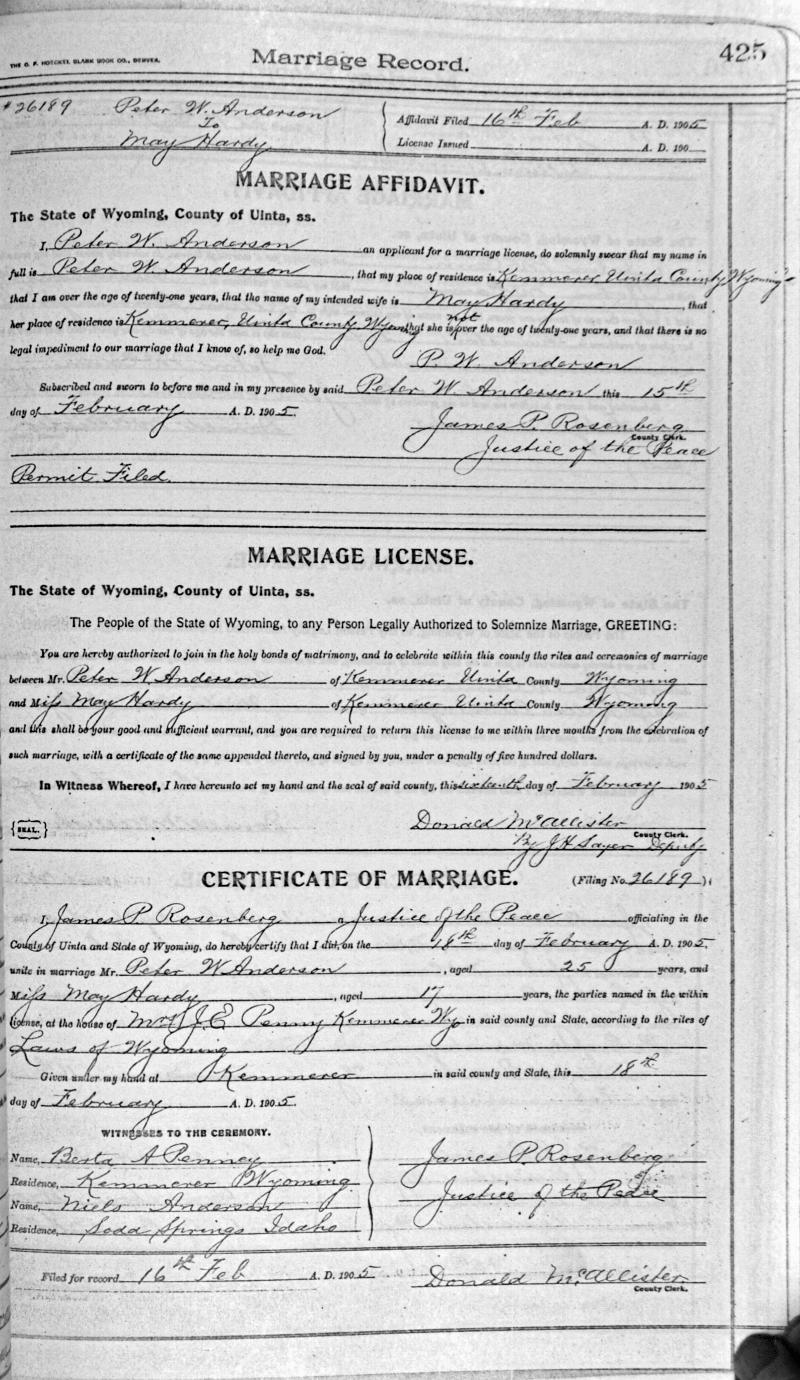 THE C. F. HOECKEL BLANK BOOK CO., DENVER.
Marriage Record.
425
#26189 Peter W. Anderson
To
May Hardy
Affidavit Filed 16th Feb A. D. 1905
License Issued A. D. 190
MARRIAGE AFFIDAVIT.
The State of Wyoming, County of Uinta, ss.
I, Peter W. Anderson an applicant for a marriage license, do solemnly swear that my name in
full is Peter W. Anderson, that my place of residence is Kemmerer Uinta County Wyoming
that I am over the age of twenty-one years, that the name of my intended wife is May Hardy, that
her place of residence is Kemmerer, Uinta County Wyoming that she is not over the age of twenty-one years, and that there is no
legal impediment to our marriage that I know of, so help me God.
P. W. Anderson
Subscribed and sworn to before me and in my presence by said Peter W. Anderson this 15th
day of February A. D. 1905.
James P. Rosenberg
County Clerk.
Justice of the Peace
Permit Filed.
MARRIAGE LICENSE.
The State of Wyoming, County of Uinta, ss.
The People of the State of Wyoming, to any Person Legally Authorized to Solemnize Marriage, GREETING:
You are hereby authorized to join in the holy bonds of matrimony, and to celebrate within this county the rites and ceremonies of marriage
between Mr. Peter W. Anderson of Kemmerer Uinta County Wyoming
and Miss May Hardy of Kemmerer Uinta County Wyoming
and this shall be your good and sufficient warrant, and you are required to return this license to me within three months from the celebration of
such marriage, with a certificate of the same appended thereto, and signed by you, under a penalty of five hundred dollars.
In Witness Whereof, I have hereunto set my hand and the seal of said county, this sixteenth day of February 1905
{SEAL.}
Donald McAllister
County Clerk.
By J H Sayer Deputy
CERTIFICATE OF MARRIAGE.
(Filing No. 26189)
I, James P. Rosenberg a Justice of the Peace officiating in the
County of Uinta and State of Wyoming, do hereby certify that I did, on the 18th day of February A. D. 1905.
unite in marriage Mr. Peter W Anderson, aged 25 years, and
Miss May Hardy, aged 17 years, the parties named in the within
license, at the house of Mrs J. E Penny Kemmerer Wyo in said county and State, according to the rites of
Laws of Wyoming
Given under my hand at Kemmerer in said county and State, this 18th
day of February A. D. 1905.
WITNESSES TO THE CEREMONY.
Name, Berta A Penney
Residence, Kemmerer Wyoming
Name, Niels Anderson
Residence, Soda Springs Idaho
James P. Rosenberg
Justice of the Peace
Filed for record 16th Feb A. D. 1905
Donald McAllister
County Clerk.